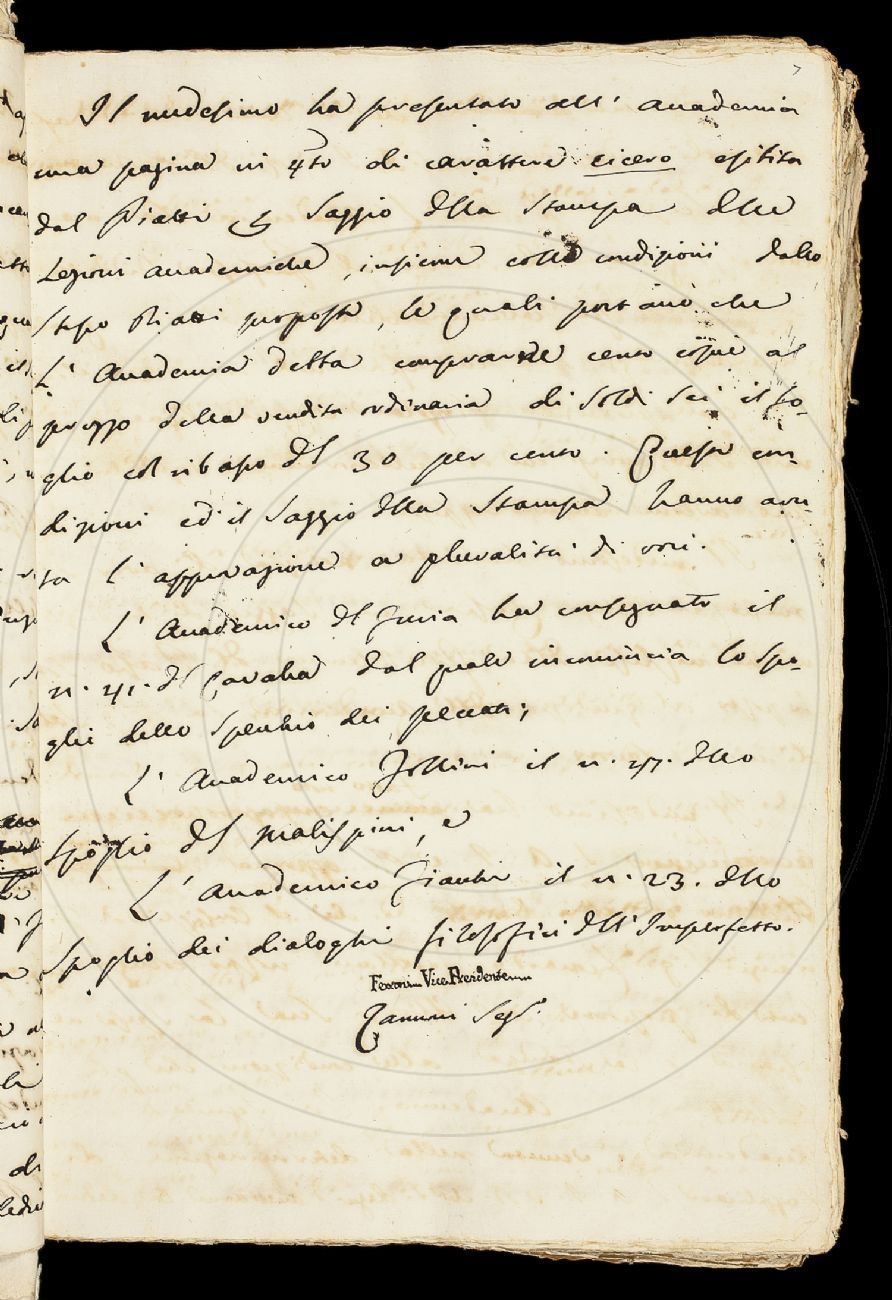 7
Il medesimo ha presentato all' Accademia
una pagina in 4to di carattere cicero esibita
dal Piatti p Saggio della Stampa delle
Lezioni accademiche, insieme colle condizioni dallo
Stesso Piatti proposte, le quali portano che
L' Accademia debba comprarne cento copie al
prezzo della vendita ordinaria di Soldi Sei il fo-
glio col ribasso del 30 per cento. Queste con-
dizioni ed il Saggio della Stampa hanno avu-
ta l' approvazione a pluralità di voti.
L' Accademico del Furia ha consegnato il
n. 41. del Cavalca dal quale incomincia lo Spo-
glio dello Specchio dei peccati;
L' Accademico Follini il n. 47. dello
Spoglio del Malispini, e
L' Accademico Fiacchi il n. 23. dello
Spoglio dei dialoghi filosofici dell' Imperfetto.
Ferroni Vice Presidente
Zannoni Seg.